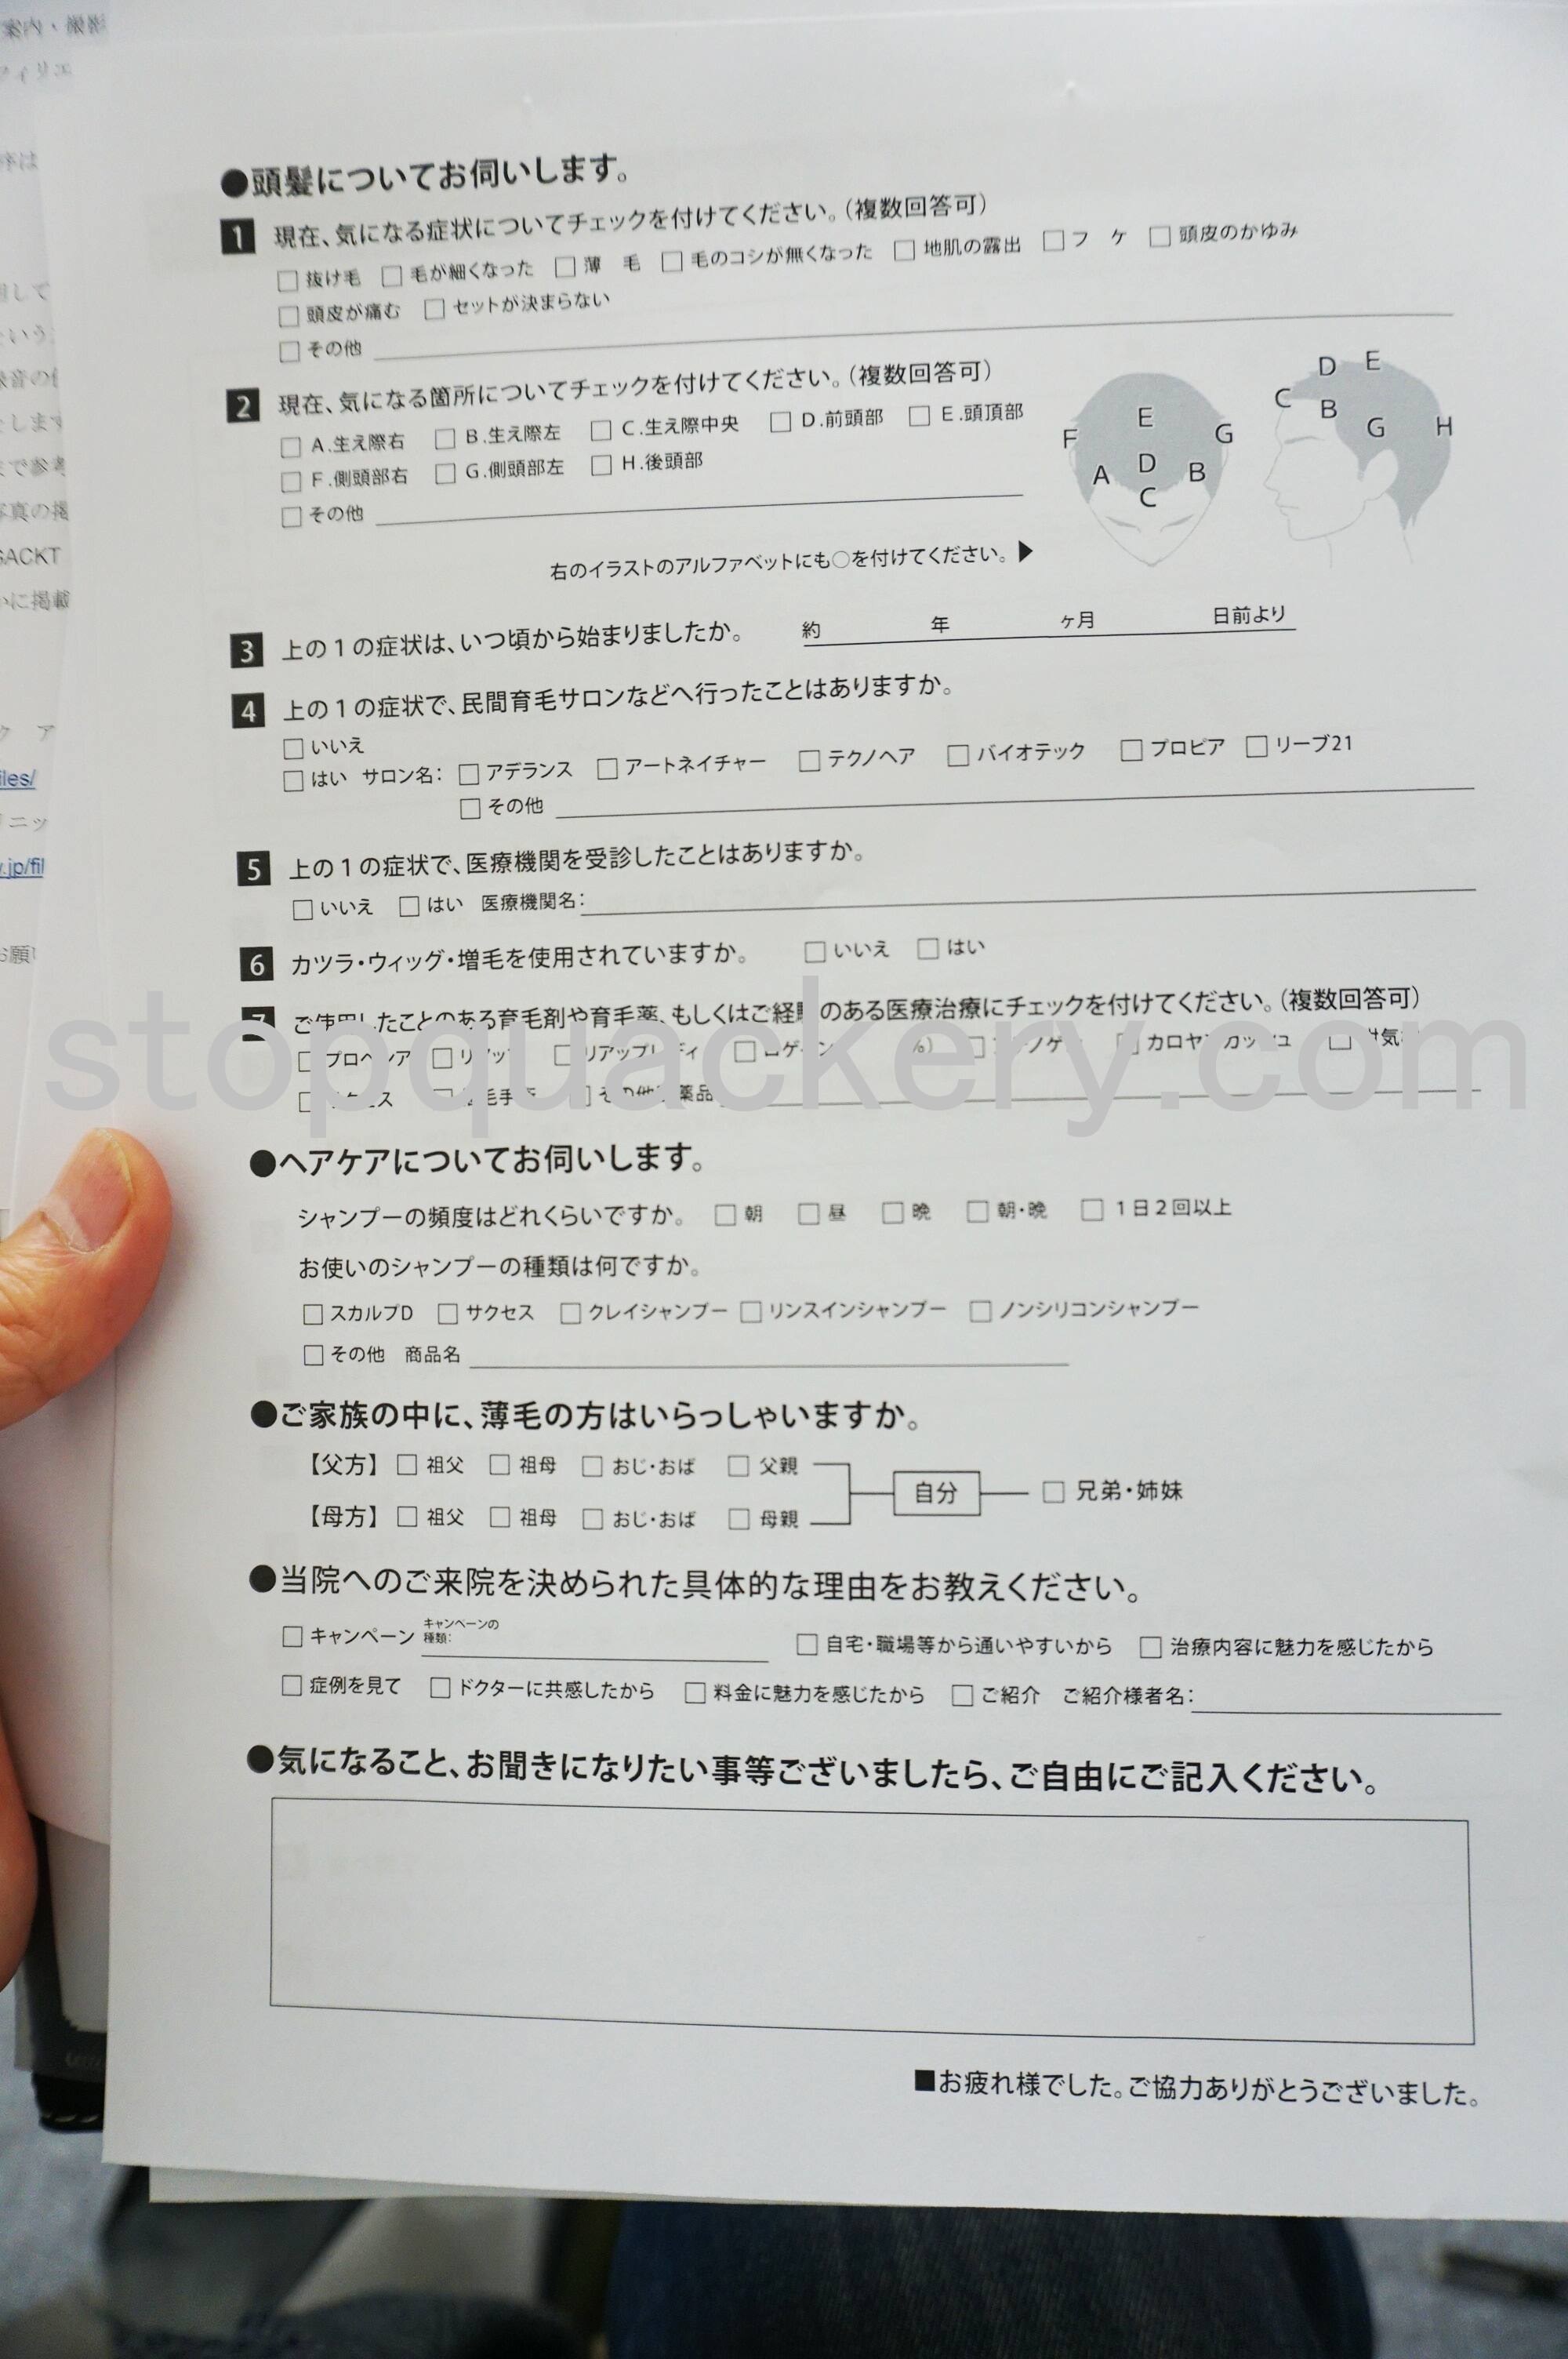 案内・撮影
フィリエ
●頭髪についてお伺いします。
1 現在、気になる症状についてチェックを付けてください。（複数回答可）
□抜け毛 □毛が細くなった □薄 毛 □毛のコシが無くなった □地肌の露出 □フ ケ □頭皮のかゆみ
□頭皮が痛む □セットが決まらない
□その他
2 現在、気になる箇所についてチェックを付けてください。（複数回答可）
□A.生え際右 □B.生え際左 □C.生え際中央 □D.前頭部 □E.頭頂部
□F.側頭部右 □G.側頭部左 □H.後頭部
□その他
E
F G
A D B
C
D E
C B G H
右のイラストのアルファベットにも○を付けてください。▶
3 上の1の症状は、いつ頃から始まりましたか。 約 年 ヶ月 日前より
4 上の1の症状で、民間育毛サロンなどへ行ったことはありますか。
□いいえ
□はい サロン名： □アデランス □アートネイチャー □テクノヘア □バイオテック □プロピア □リーブ21
□その他
5 上の1の症状で、医療機関を受診したことはありますか。
□いいえ □はい 医療機関名：
6 カツラ・ウィッグ・増毛を使用されていますか。 □いいえ □はい
7 ご使用したことのある育毛剤や育毛薬、もしくはご経験のある医療治療にチェックを付けてください。（複数回答可）
□プロペシア □リアップ □リアップレディ
stopquackery.com
●ヘアケアについてお伺いします。
シャンプーの頻度はどれくらいですか。 □朝 □昼 □晩 □朝・晩 □1日2回以上
お使いのシャンプーの種類は何ですか。
□スカルプD □サクセス □クレイシャンプー □リンスインシャンプー □ノンシリコンシャンプー
□その他 商品名
●ご家族の中に、薄毛の方はいらっしゃいますか。
【父方】 □祖父 □祖母 □おじ・おば □父親
自分 □兄弟・姉妹
【母方】 □祖父 □祖母 □おじ・おば □母親
●当院へのご来院を決められた具体的な理由をお教えください。
□キャンペーン キャンペーンの種類： □自宅・職場等から通いやすいから □治療内容に魅力を感じたから
□症例を見て □ドクターに共感したから □料金に魅力を感じたから □ご紹介 ご紹介様者名：
●気になること、お聞きになりたい事等ございましたら、ご自由にご記入ください。
■お疲れ様でした。ご協力ありがとうございました。
GACKT
iles/
.jp/fil